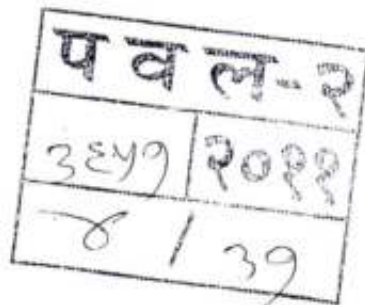 प व ल-२
३६५१ २०११
४ / ३१